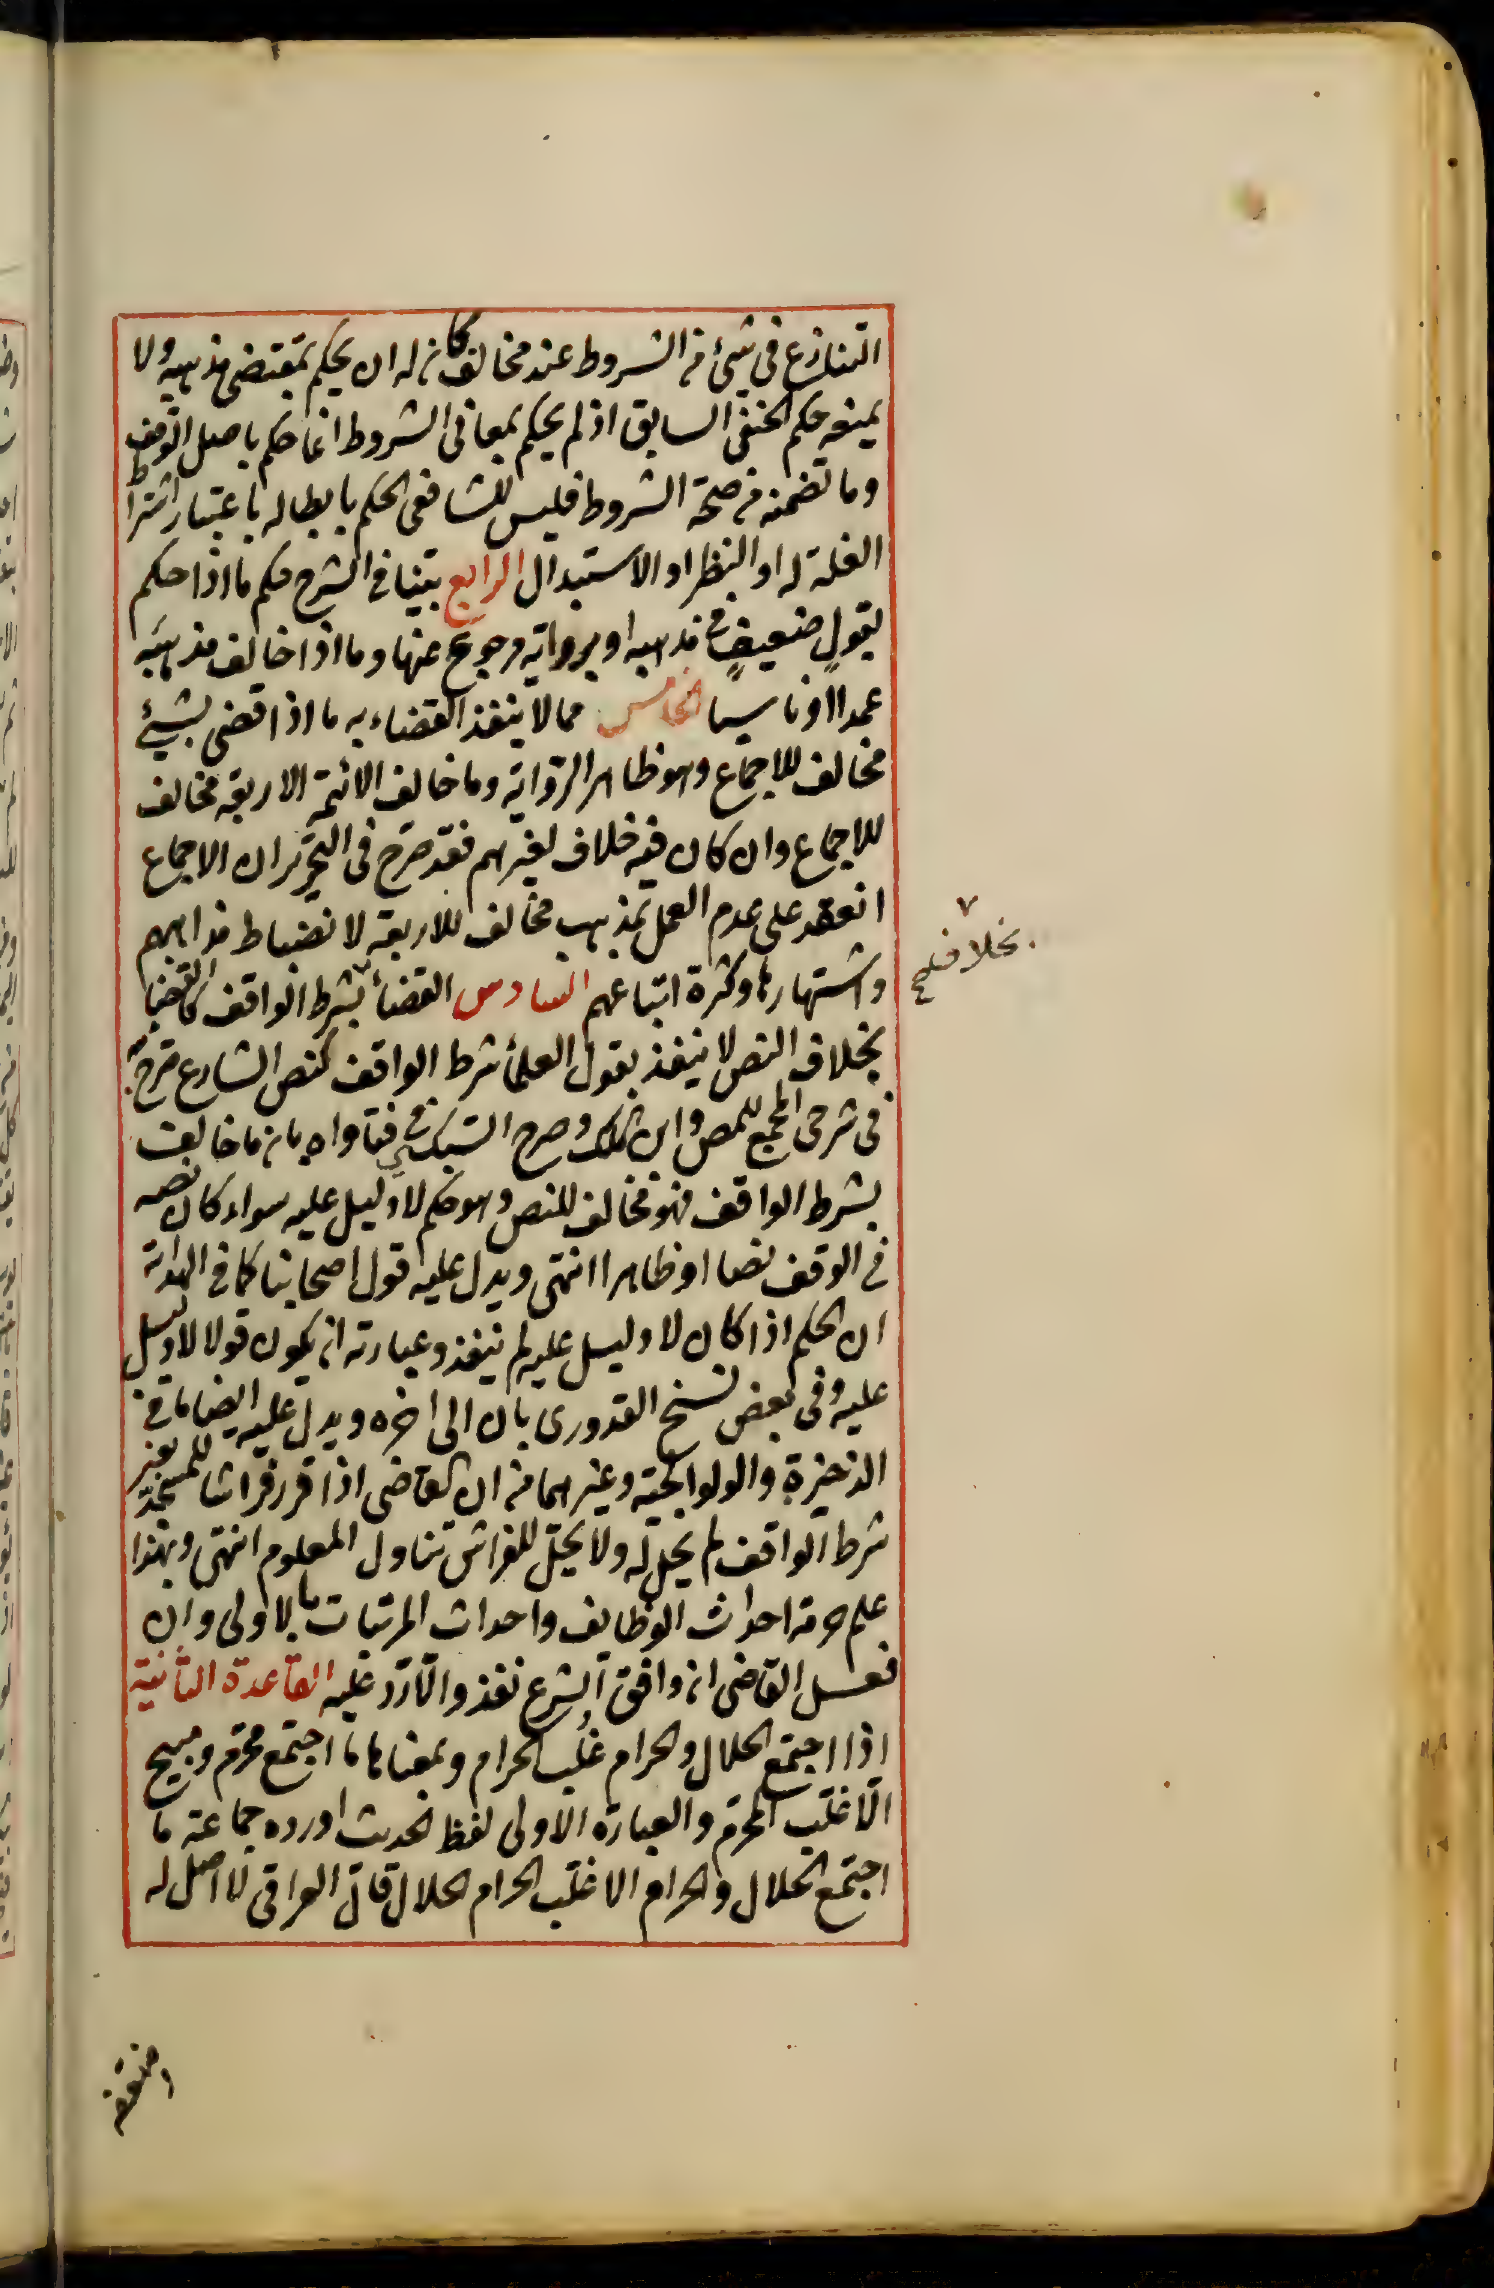 التنازع في شيء من الشروط عند مخالف كان له ان يحكم بمقتضى مذهبه ولا
يمنعه حكم الحنفي السابق اذ لم يحكم بمعاني الشروط انما حكم باصل الوقف
وما تضمنه من صحة الشروط فليس للشافعي الحكم بابطاله باعتبار اشتراط
الغلة له او النظر او الاستبدال الرابع بينا في الشرح حكم ما اذا حكم
بقول ضعيف في مذهبه او برواية مرجوع عنها وما اذا خالف مذهبه
عمدا او ناسيا الخامس مما لا ينفذ القضاء به ما اذا قضى بشيء
مخالف للاجماع وهو ظاهر الرواية وما خالف الائمة الاربعة مخالف
للاجماع وان كان فيه خلاف لغيرهم فقد صرح في التحرير ان الاجماع
انعقد على عدم العمل بمذهب مخالف للاربعة لانضباط مذاهبهم
واشتهارها وكثرة اتباعهم السادس القضاء بشرط الواقف كالقضاء
بخلاف النص لا ينفذ بقول العلماء شرط الواقف كنص الشارع صرح به
في شرحي المجمع للمص وابن الملك وصرح السبكي في فتاواه بان ما خالف
بشرط الواقف فهو مخالف للنص وهو حكم لا دليل عليه سواء كان نصه
في الوقف نصا او ظاهرا انتهى ويدل عليه قول اصحابنا كما في الهداية
ان الحكم اذا كان لا دليل عليه لم ينفذ وعبارته او يكون قولا لا دليل
عليه وفي بعض نسخ القدوري بان الى اخره ويدل عليه ايضا ما في
الذخيرة والولوالجية وغيرهما من ان القاضي اذا قرر فراشا للمسجد بغير
شرط الواقف لم يحل له ولا يحل للفراش تناول المعلوم انتهى وبهذا
علم حرمة احداث الوظايف واحداث المرتبات بالاولى وان
فعل القاضي ان وافق الشرع نفذ والا رد عليه القاعدة الثانية
اذا اجتمع الحلال والحرام غلب الحرام وبمعناها ما اجتمع محرم ومبيح
الا غلب المحرم والعبارة الاولى لفظ الحديث اورده جماعة ما
اجتمع الحلال والحرام الا غلب الحرام الحلال قال العراقي لا اصل له
بخلاف صح
وضعفه